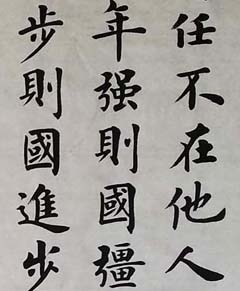 任不在他人
年强則國彊
步則國進步